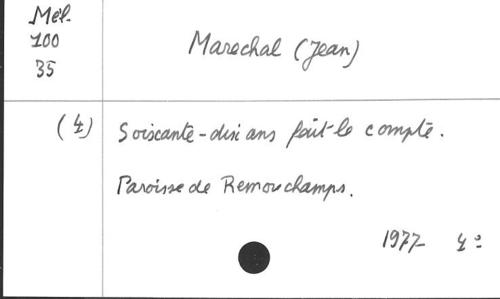 Mél.
100
35
Marechal (Jean)
(4) Soixante-dix ans fait le compte.
Paroisse de Remouchamps.
1977 4º